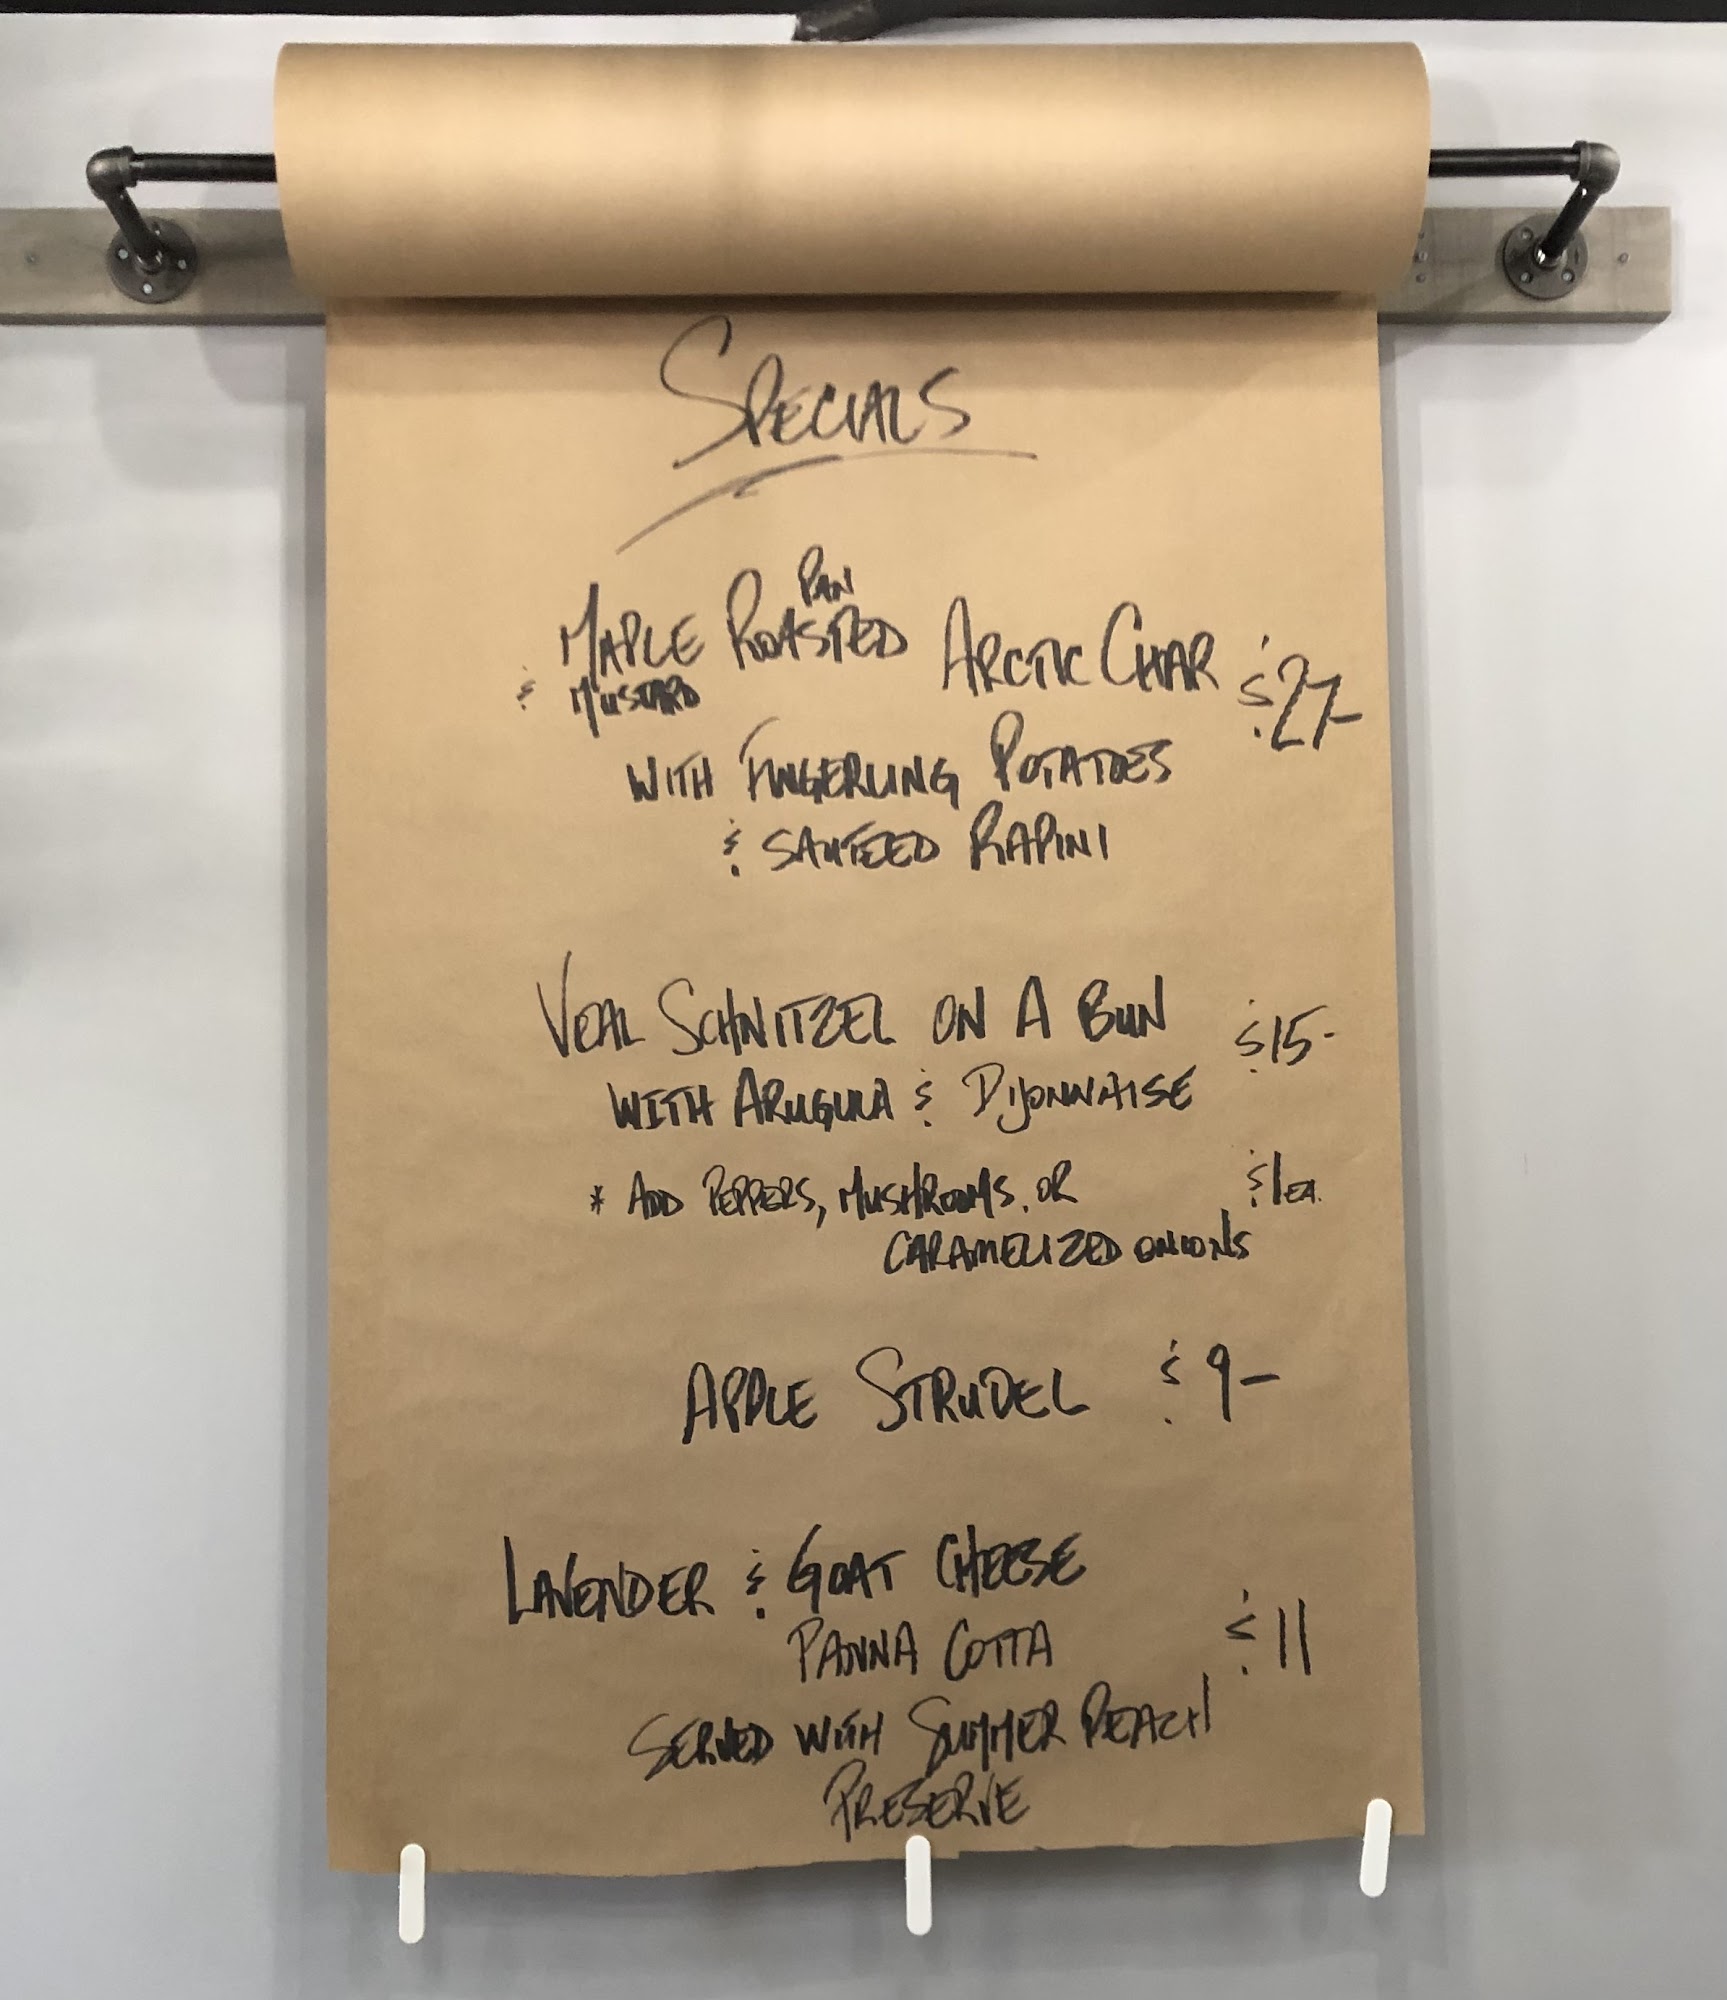 SPECIALS
MAPLE PAN ROASTED ARCTIC CHAR $27-
& MUSTARD
WITH FINGERLING POTATOES
& SAUTEED RAPINI
VEAL SCHNITZEL ON A BUN $15-
WITH ARUGULA & DIJONNAISE
* ADD PEPPERS, MUSHROOMS, OR $1 EA.
CARAMELIZED ONIONS
APPLE STRUDEL $9-
LAVENDER & GOAT CHEESE
PANNA COTTA $11
SERVED WITH SUMMER PEACH
PRESERVE